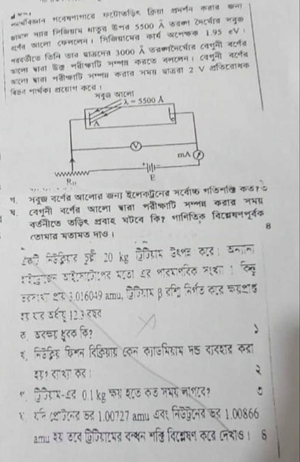 পদার্থবিজ্ঞান গবেষণাগারে ফটোতড়িৎ ক্রিয়া প্রদর্শন করার জন্য
স্যার লিথিয়াম ধাতুর উপর 5500 Å তরঙ্গ দৈর্ঘ্যের সবুজ
বর্ণের আলো ফেললেন। লিথিয়ামের কার্য অপেক্ষক 1.95 eV।
পরবর্তীতে তিনি তার ছাত্রদের 3000 Å তরঙ্গদৈর্ঘ্যের বেগুনী বর্ণের
আলো দ্বারা উক্ত পরীক্ষাটি সম্পন্ন করতে বললেন। বেগুনী বর্ণের
আলো দ্বারা পরীক্ষাটি সম্পন্ন করার সময় ছাত্ররা 2 V প্রতিরোধক
বিভব পার্থক্য প্রয়োগ করে।
সবুজ আলো
λ = 5500 Å
A
C
V
mA
E
গ. সবুজ বর্ণের আলোর জন্য ইলেকট্রনের সর্বোচ্চ গতিশক্তি কত? ৩
ঘ. বেগুনী বর্ণের আলো দ্বারা পরীক্ষাটি সম্পন্ন করার সময়
বর্তনীতে তড়িৎ প্রবাহ ঘটবে কি? গাণিতিক বিশ্লেষণপূর্বক
তোমার মতামত দাও। ৪
একটি নিউক্লিয়ার চুল্লী 20 kg ট্রিটিয়াম উৎপন্ন করে। অন্যান্য
হাইড্রোজেন আইসোটোপের মতো এর পারমাণবিক সংখ্যা 1 কিন্তু
ভরসংখ্যা প্রায় 3.016049 amu, ট্রিটিয়াম β রশ্মি নির্গত করে ক্ষয়প্রাপ্ত
হয় যার অর্ধায়ু 12.3 বছর
ক. অবক্ষয় ধ্রুবক কি? ১
খ. নিউক্লিয় ফিশন বিক্রিয়ায় কেন ক্যাডমিয়াম দন্ড ব্যবহার করা
হয়? ব্যাখ্যা কর। ২
গ. ট্রিটিয়াম-এর 0.1 kg ক্ষয় হতে কত সময় লাগবে? ৩
ঘ. যদি প্রোটনের ভর 1.00727 amu এবং নিউট্রনের ভর 1.00866
amu হয় তবে ট্রিটিয়ামের বন্ধন শক্তি বিশ্লেষণ করে দেখাও। ৪